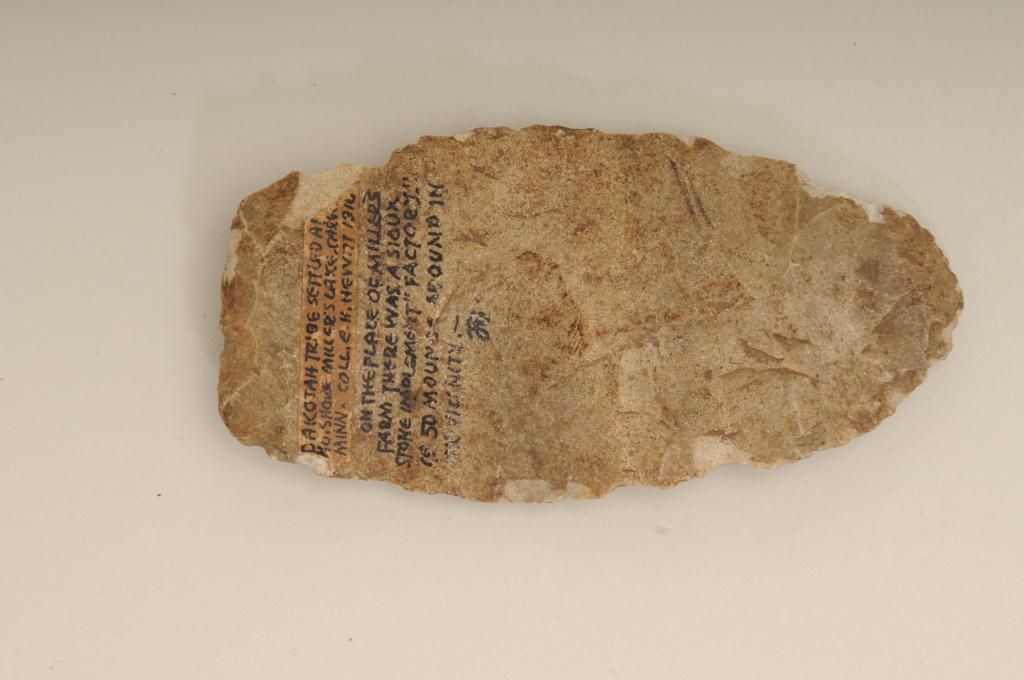 DAKOTAH TRIBE SETTLED AT
SHORE MILLER'S LAKE, PARK
MINN. COLL. E.K. NEWTT 1916
ON THE PLACE OF MILLS
FARM THERE WAS A SIOUX
STONE IMPLEMENT "FACTORY".
50 MOUNDS AROUND IN
VICINITY.—